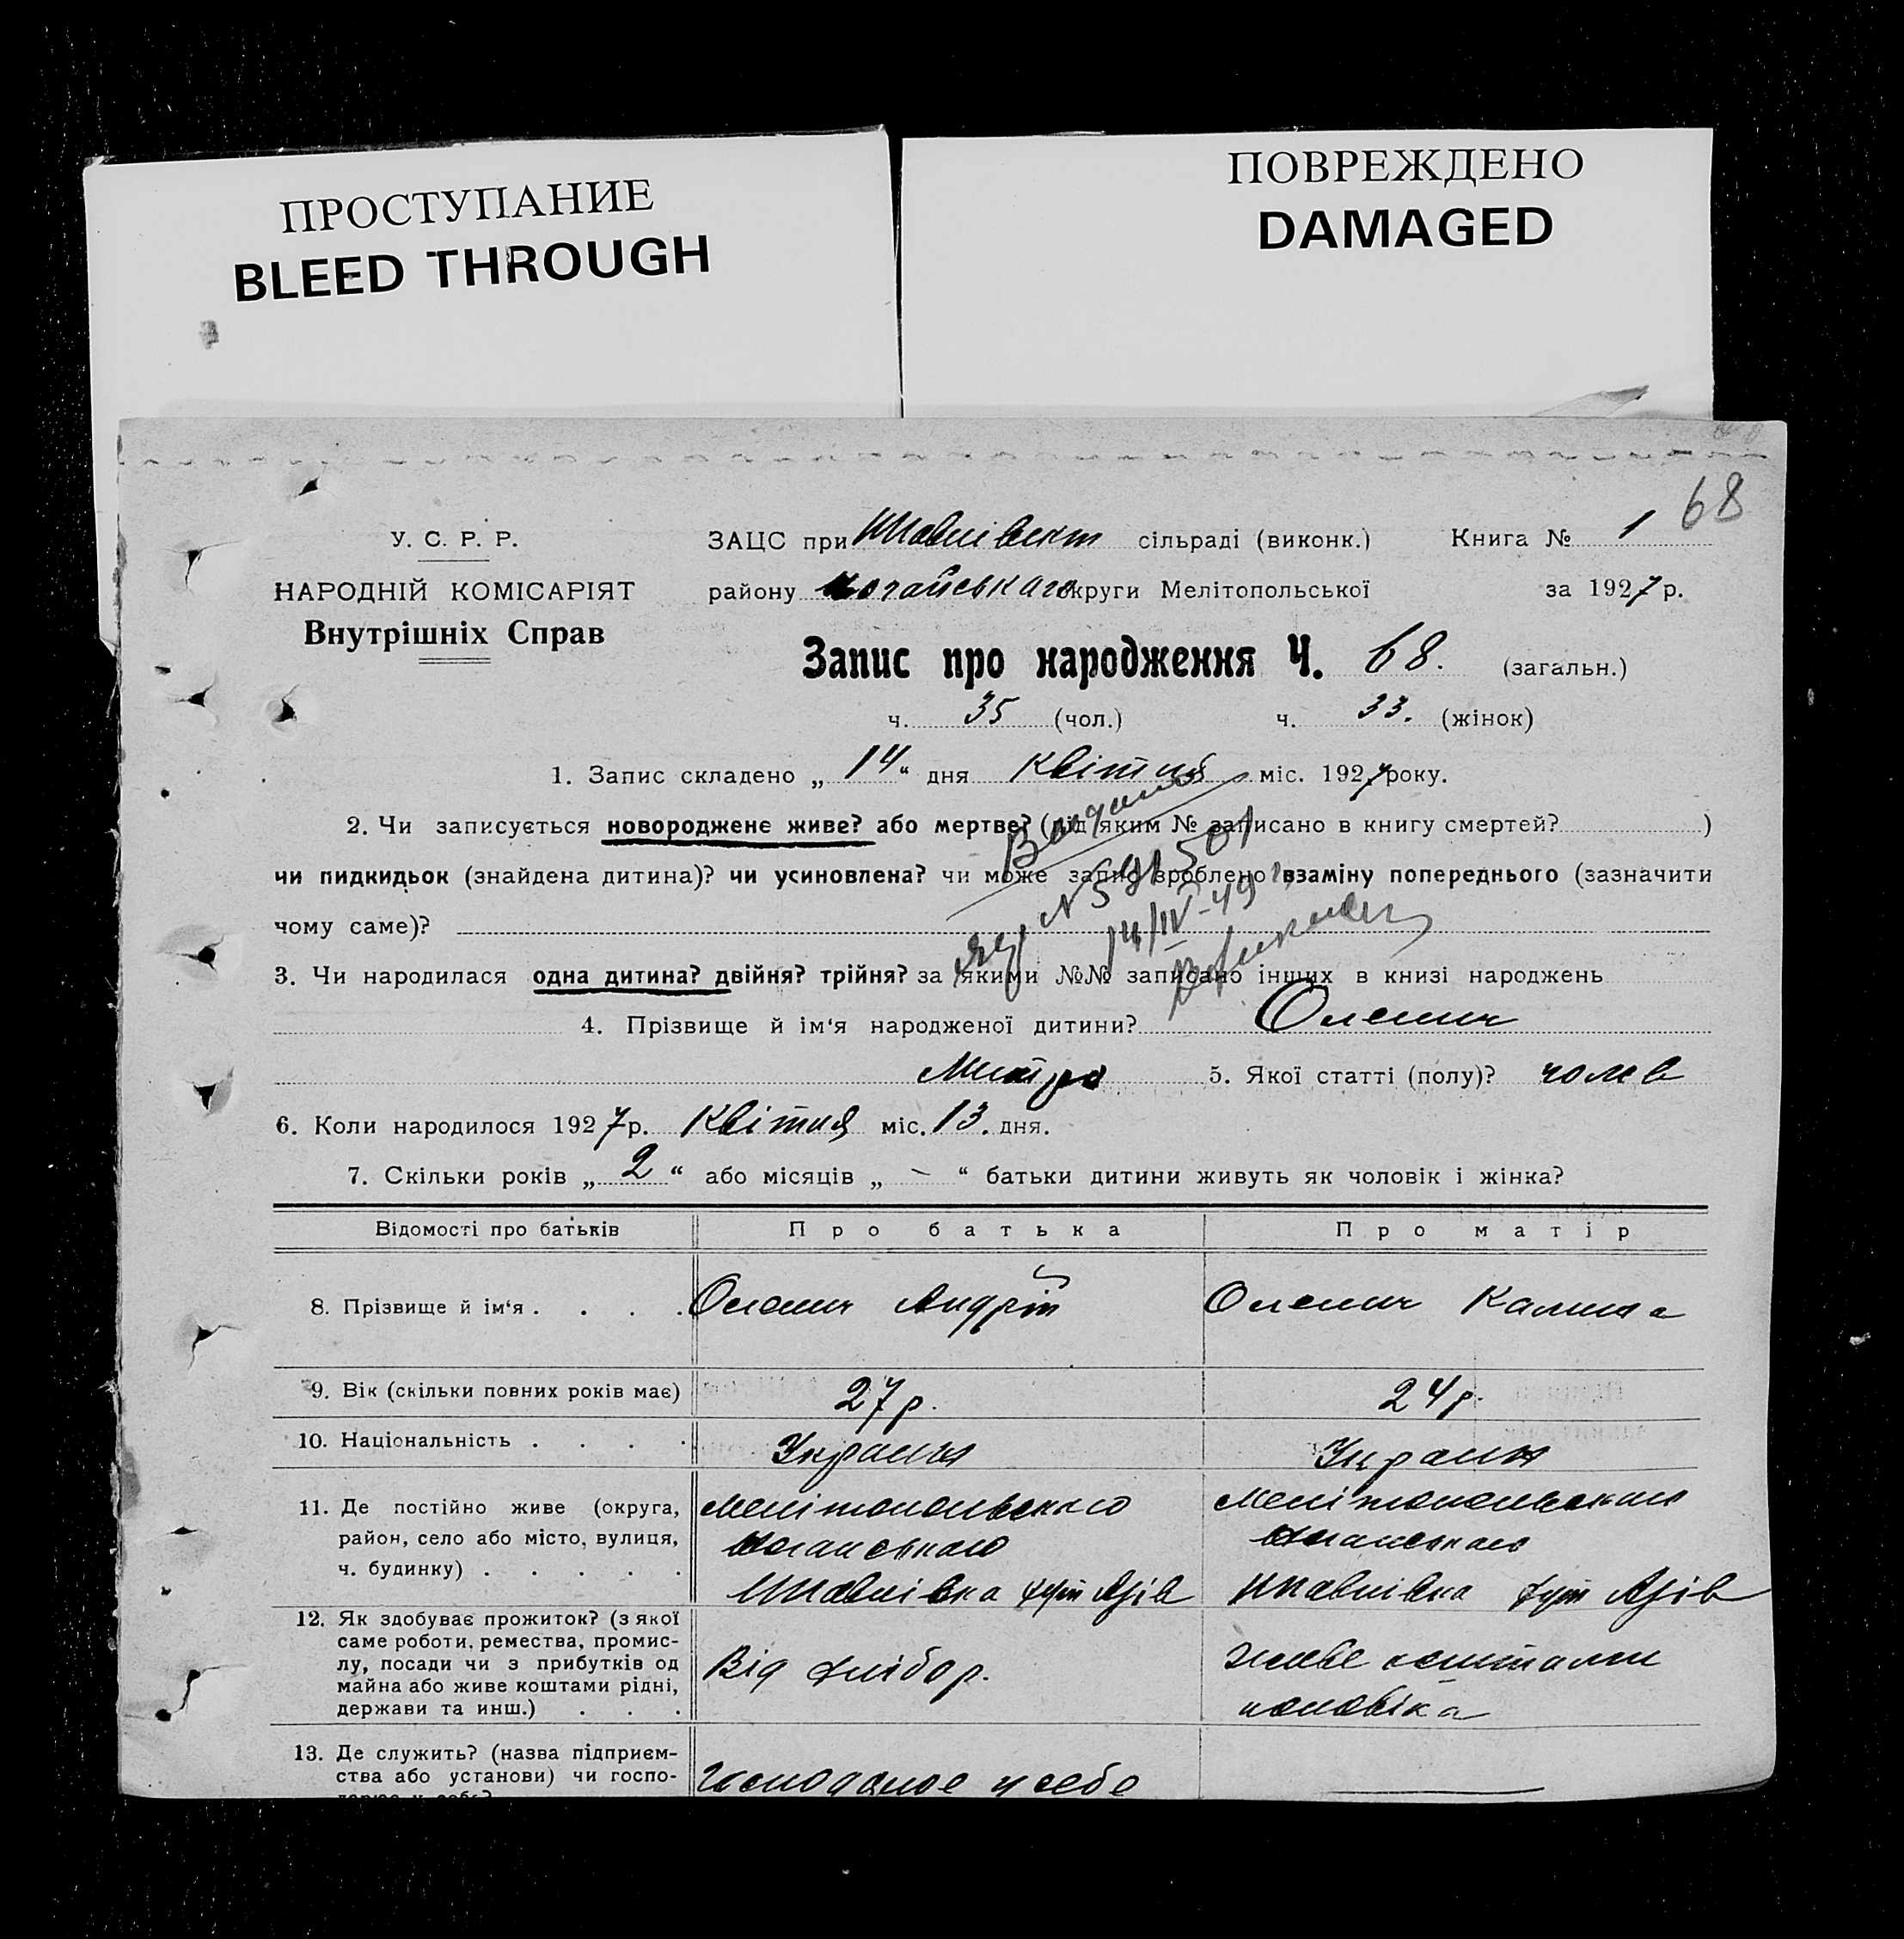 ПРОСТУПАНИЕ
BLEED THROUGH
ПОВРЕЖДЕНО
DAMAGED
68
У. С. Р. Р.
НАРОДНІЙ КОМІСАРІЯТ
Внутрішніх Справ
ЗАЦС при сільраді (виконк.) Книга № 1
району округи Мелітопольської за 1927 р.
Запис про народження Ч. 68. (загальн.)
ч. 35 (чол.) ч. 33. (жінок)
1. Запис складено „14“ дня Квітня міс. 1927 року.
2. Чи записується новороджене живе? або мертве? (під яким № записано в книгу смертей? )
чи пидкидьок (знайдена дитина)? чи усиновлена? чи може запис зроблено взаміну попереднього (зазначити
чому саме)?
14/IV-49
3. Чи народилася одна дитина? двійня? трійня? за якими №№ записано інших в книзі народжень
4. Прізвище й ім‘я народженої дитини? Олешич
Митро 5. Якої статті (полу)? чолов
6. Коли народилося 1927 р. Квітня міс. 13. дня.
7. Скільки років „2“ або місяців „–“ батьки дитини живуть як чоловік і жінка?
Відомості про батьків Про батька Про матір
8. Прізвище й ім‘я . . . . Олешич Андрій Олешич Калина
9. Вік (скільки повних років має) 27 р. 24 р.
10. Національність . . . . Украин Украин
11. Де постійно живе (округа, Мелітопольського Мелітопольського
район, село або місто, вулиця, Ногайського Ногайського
ч. будинку) . . . . . хут Азів хут Азів
12. Як здобуває прожиток? (з якої
саме роботи, ремества, промис-
лу, посади чи з прибутків од
майна або живе коштами рідні,
держави та инш.) . . .
Від хлібор.
живе коштами
чоловіка
13. Де служить? (назва підприєм-
ства або установи) чи госпо-
дарює у себе?
господарює у себе